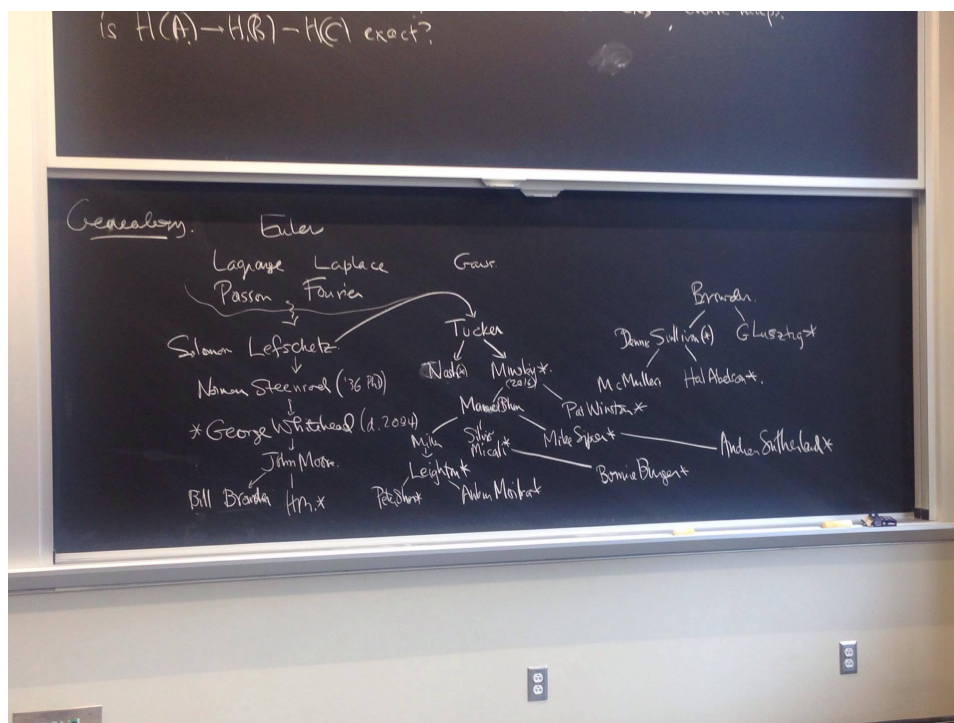 is H(A) → H(B) – H(C) exact?
Genealogy.
Euler
Lagrange Laplace Gauss.
Poisson Fourier
Solomon Lefschetz
Norman Steenrod ('36 PhD)
* George Whitehead (d. 2004)
John Moore.
Bill Browder HM.*
Tucker
Nash(*) Minsky*.
(2016)
Manuel Blum Pat Winston*
Miller Silvio Micali* Mike Sipser* Andrew Sutherland*
Leighton* Bonnie Berger*
Peter Shor* Ankur Moitra*
Browder.
Dennis Sullivan(*) G Lusztig*
McMullen Hal Abelson*.